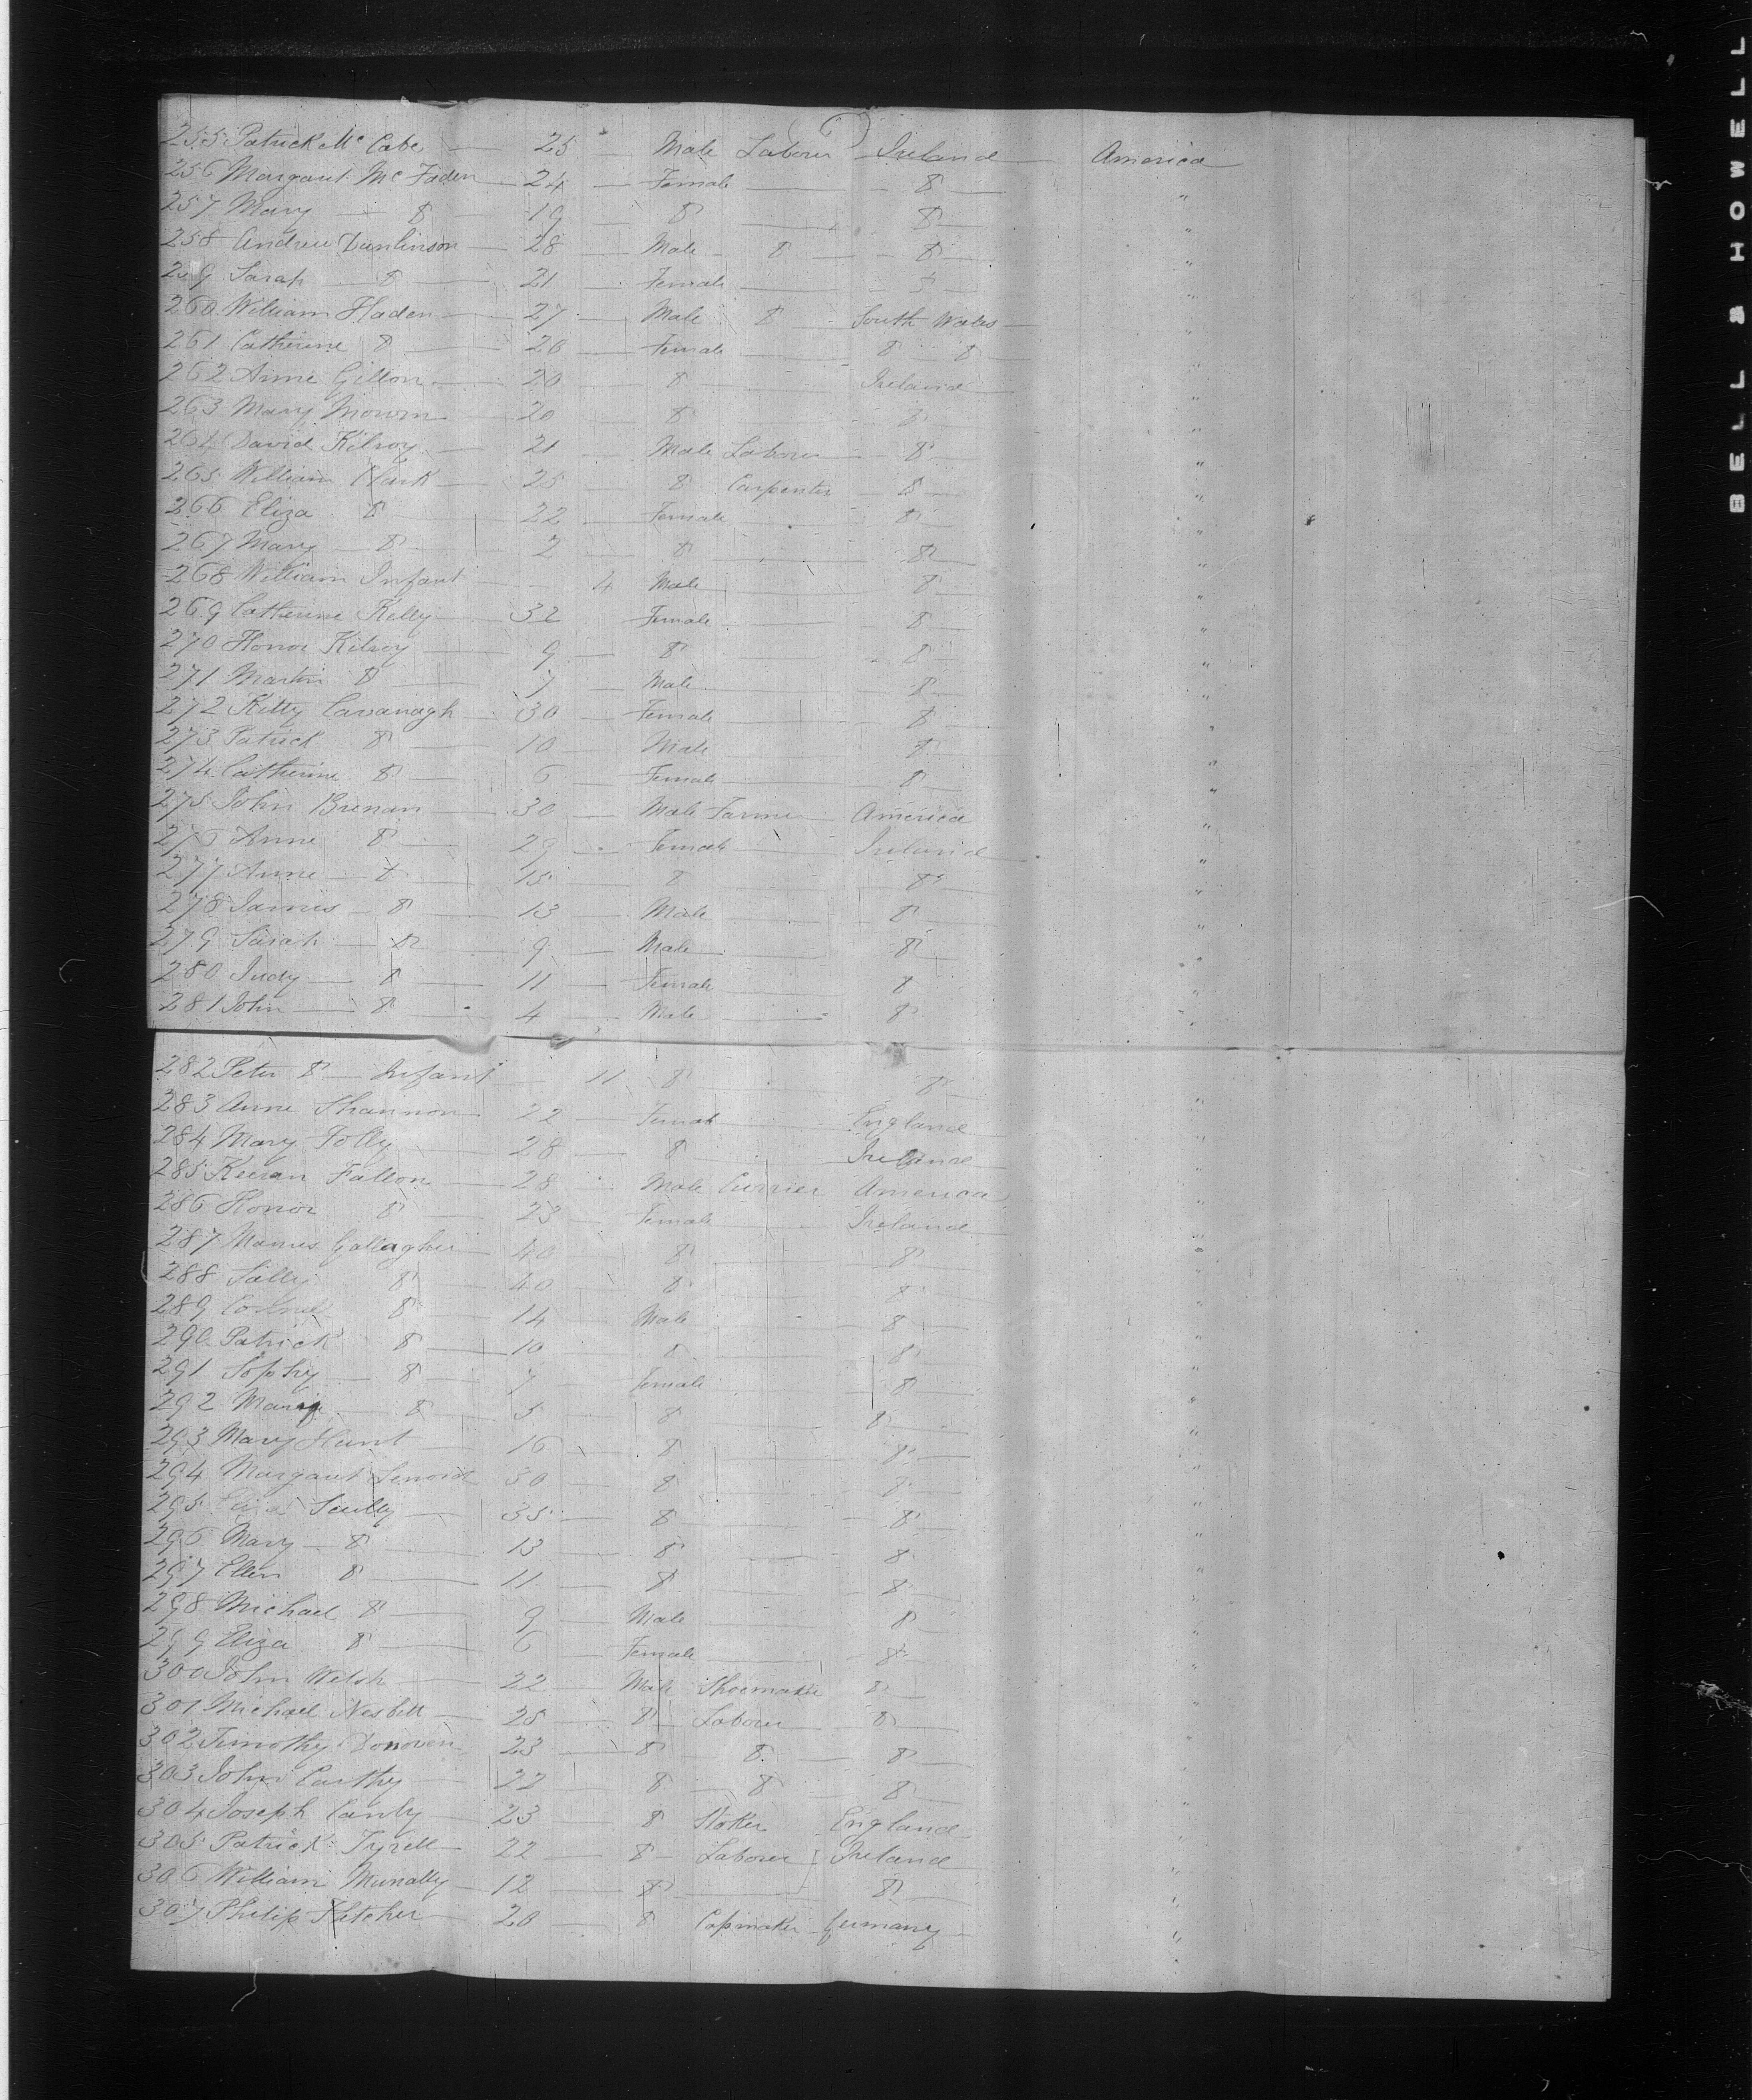 255 Patrick Mc Cabe 25 Male Laborer Ireland America
256 Margaret Mc Faden 24 Female do "
257 Mary do 19 do do "
258 Andrew Dunlinson 28 Male do do "
259 Sarah do 21 Female do "
260 William Haden 27 Male do South Wales "
261 Catherine do 26 Female do do "
262 Anne Gillon 20 do Ireland "
263 Mary 20 do do "
264 David Kilroy 21 Male Laborer do "
265 William Clark 25 do Carpenter do "
266 Eliza do 22 Female do "
267 Mary do 2 do do "
268 William Infant 4 Male do "
269 Catherine Kelly 32 Female do "
270 Honor Kilroy 9 do do "
271 Martin do 7 Male do "
272 Kitty Cavanagh 30 Female do "
273 Patrick do 10 Male do "
274 Catherine do 6 Female do "
275 John Brenan 30 Male Farmer America "
276 Anne do 29 Female Ireland "
277 Anne do 15 do do "
278 James do 13 Male do "
279 Sarah do 9 Male do "
280 Judy do 11 Female do "
281 John do 4 Male do "
282 Peter do Infant 11 do do "
283 Anne Shannon 22 Female England "
284 Mary Jolly 28 do Ireland "
285 Kieran Fallon 28 Male Currier America "
286 Honor do 23 Female Ireland "
287 Manus Gallagher 40 do do "
288 Sally do 40 do do "
289 do 14 Male do "
290 Patrick do 10 do do "
291 Sophy do 7 Female do "
292 do 5 do do "
293 Mary Hunt 16 do do "
294 Margaret 30 do do "
295 Scully 35 do do "
296 Mary do 13 do do "
297 Ellen do 11 do do "
298 Michael do 9 Male do "
299 Eliza do 6 Female do "
300 John Welsh 22 Male Shoemaker do "
301 Michael Nesbitt 25 do Laborer do "
302 Timothy Donoven 23 do do do "
303 John Carthy 22 do do do "
304 Joseph Canly 23 do Stoker England "
305 Patrick Tyrell 22 do Laborer Ireland "
306 William Munally 12 do do "
307 Philip 20 do Capmaker Germany "
BELL & HOWELL